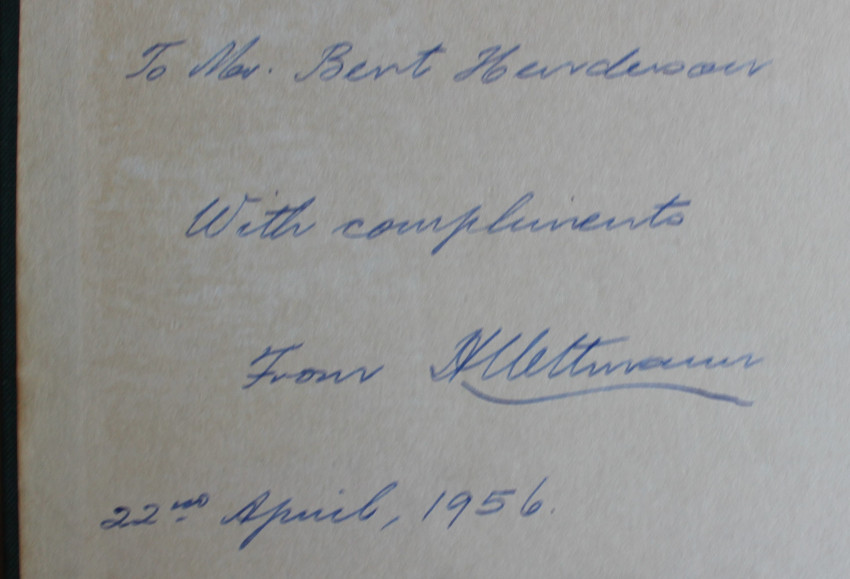 To Mr. Bert Henderson
With compliments
From
22nd April, 1956.